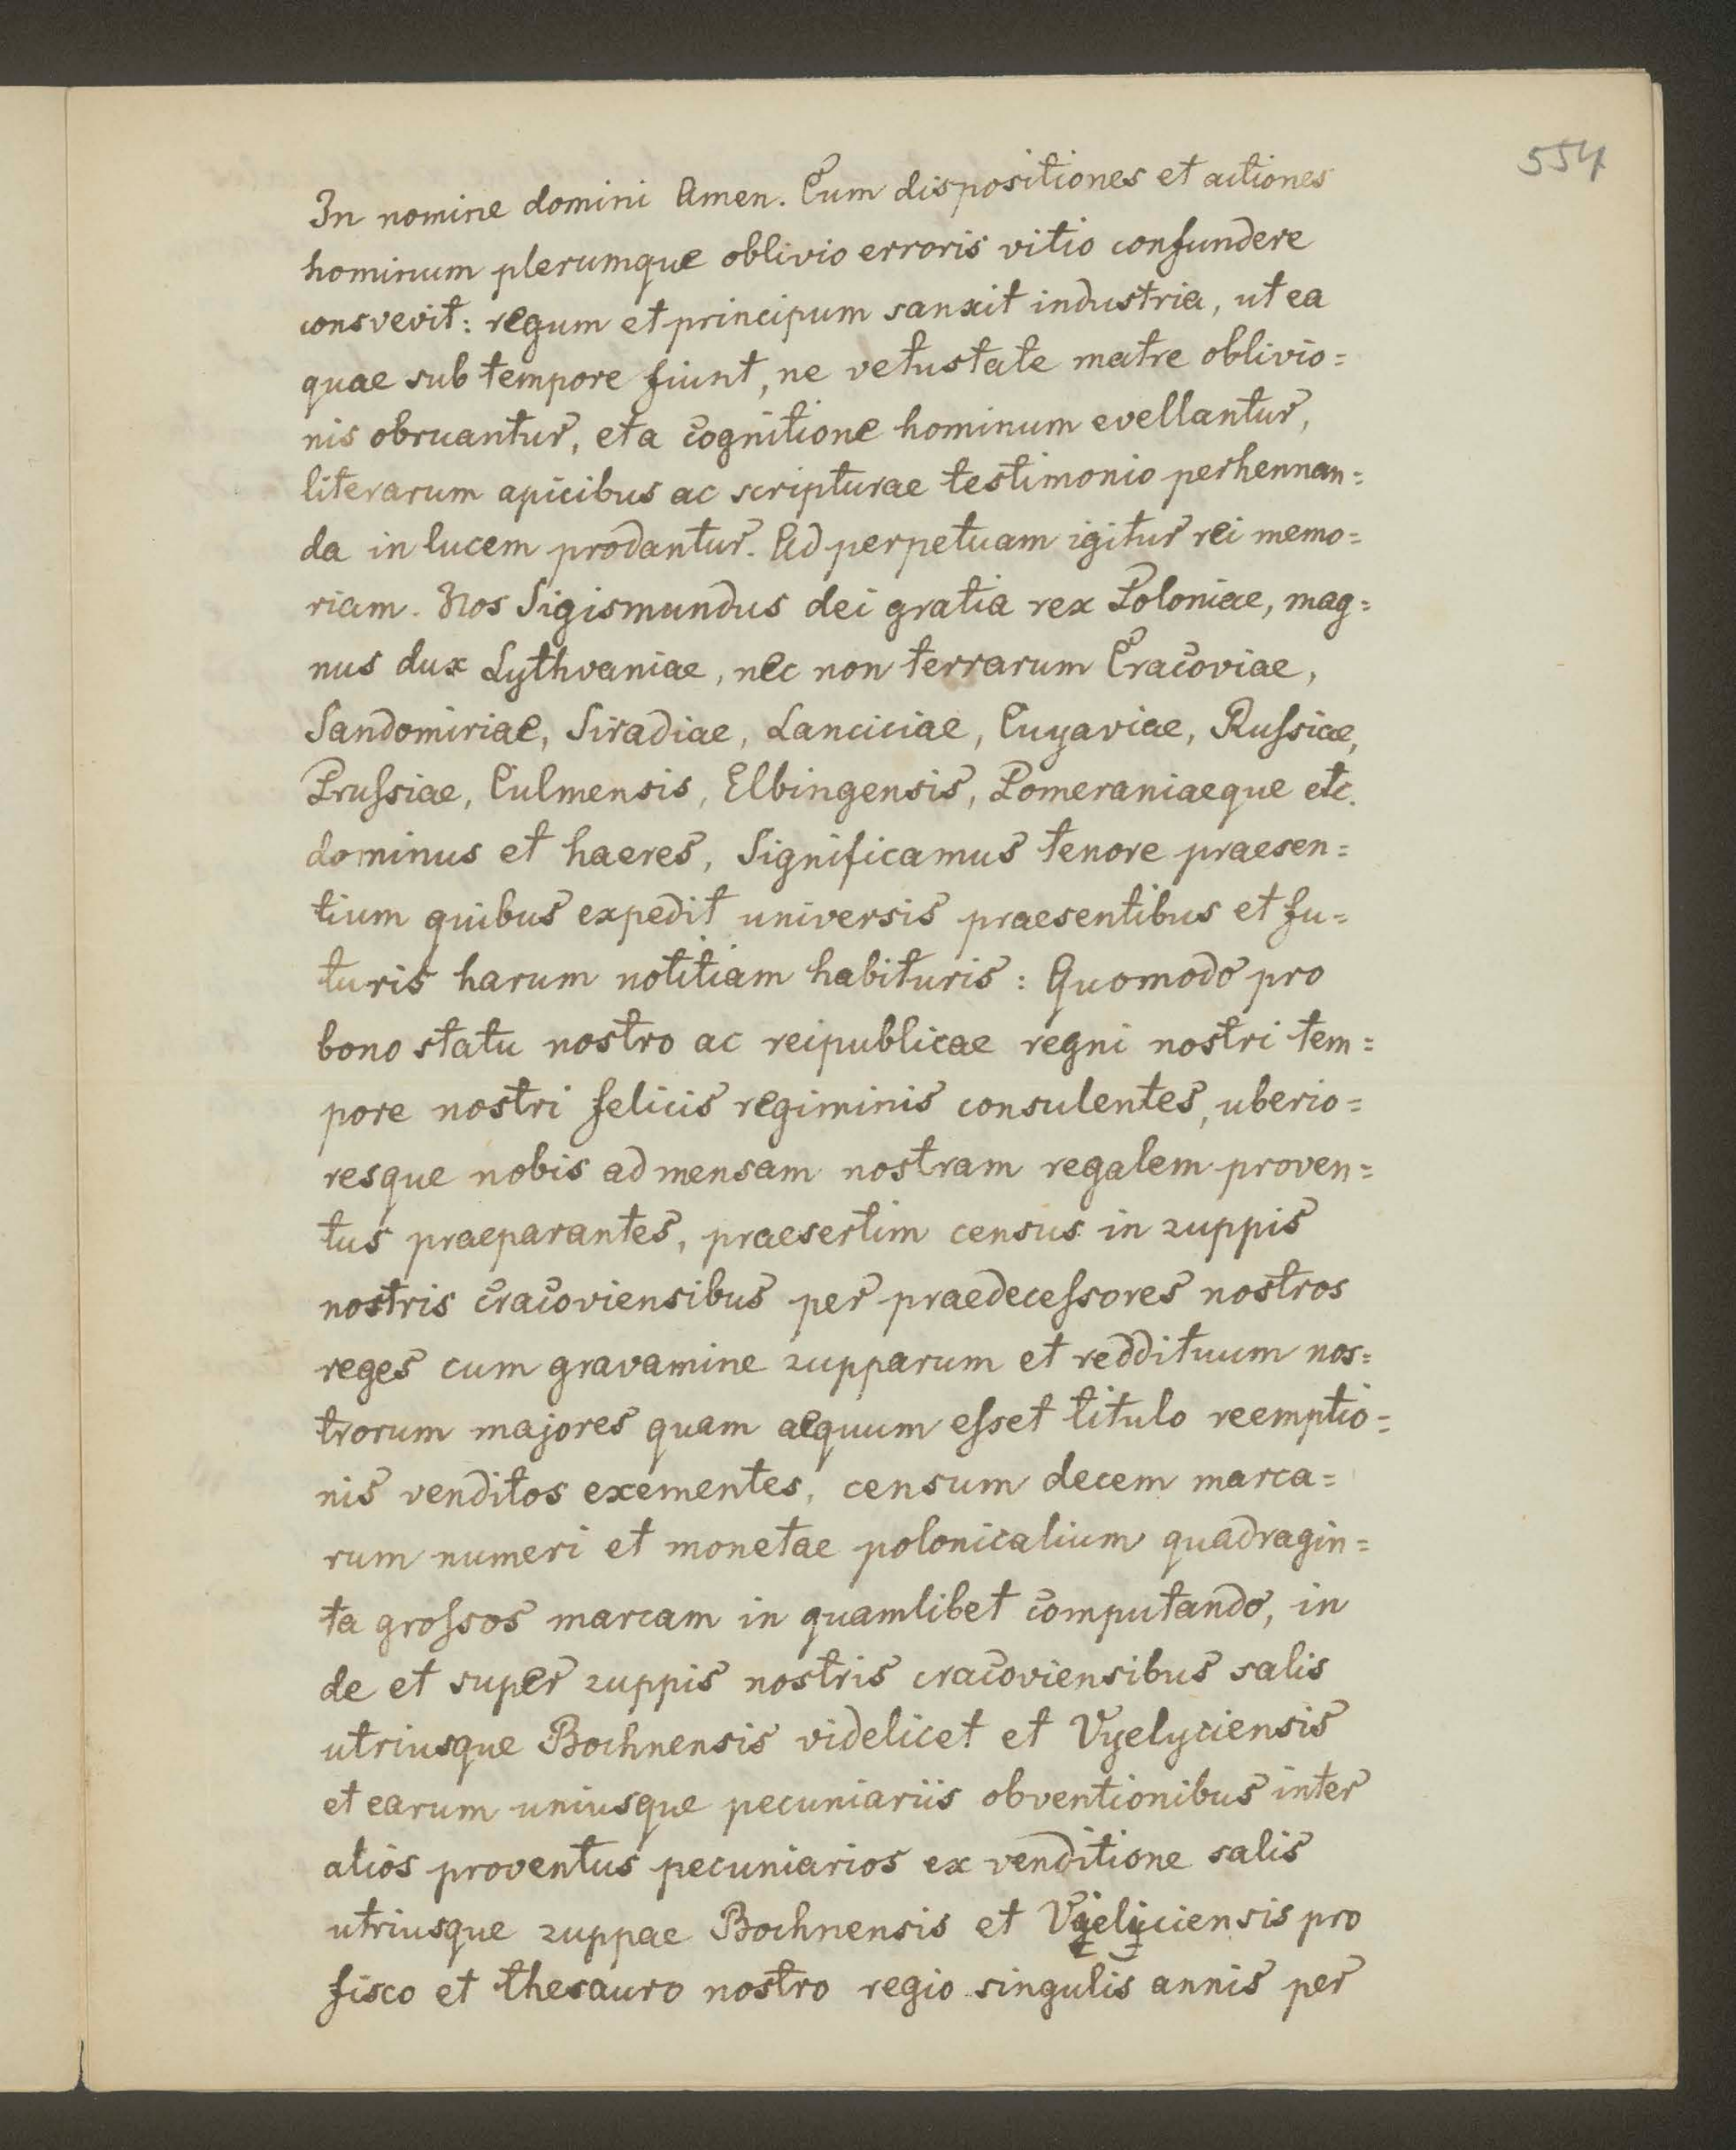 554
In nomine domini Amen. Cum dispositiones et actiones
hominum plerumque oblivio erroris vitio confundere
consvevit: regum et principum sanxit industria, ut ea
quae sub tempore fiunt, ne vetustate matre oblivio=
nis obruantur, et a cognitione hominum evellantur,
literarum apicibus ac scripturae testimonio perhennan=
da in lucem prodantur. Ad perpetuam igitur rei memo=
riam. Nos Sigismundus dei gratia rex Poloniae, mag=
nus dux Lythvaniae, nec non terrarum Cracoviae,
Sandomiriae, Siradiae, Lanciciae, Cuyaviae, Russiae,
Prussiae, Culmensis, Elbingensis, Pomeraniaeque etc.
dominus et haeres, Significamus tenore praesen=
tium quibus expedit universis praesentibus et fu=
turis harum notitiam habituris: Quomodo pro
bono statu nostro ac reipublicae regni nostri tem=
pore nostri felicis regiminis consulentes, uberio=
resque nobis ad mensam nostram regalem proven=
tus praeparantes, praesertim census in zuppis
nostris cracoviensibus per praedecessores nostros
reges cum gravamine zupparum et reddituum nos=
trorum majores quam aequum esset titulo reemptio=
nis venditos exementes, censum decem marca=
rum numeri et monetae polonicalium quadragin=
ta grossos marcam in quamlibet computando, in
de et super zuppis nostris cracoviensibus salis
utriusque Bochnensis videlicet et Vyelyciensis
et earum uniusque pecuniariis obventionibus inter
alios proventus pecuniarios ex venditione salis
utriusque zuppae Bochnensis et Vyelyciensis pro
fisco et thesauro nostro regio singulis annis per